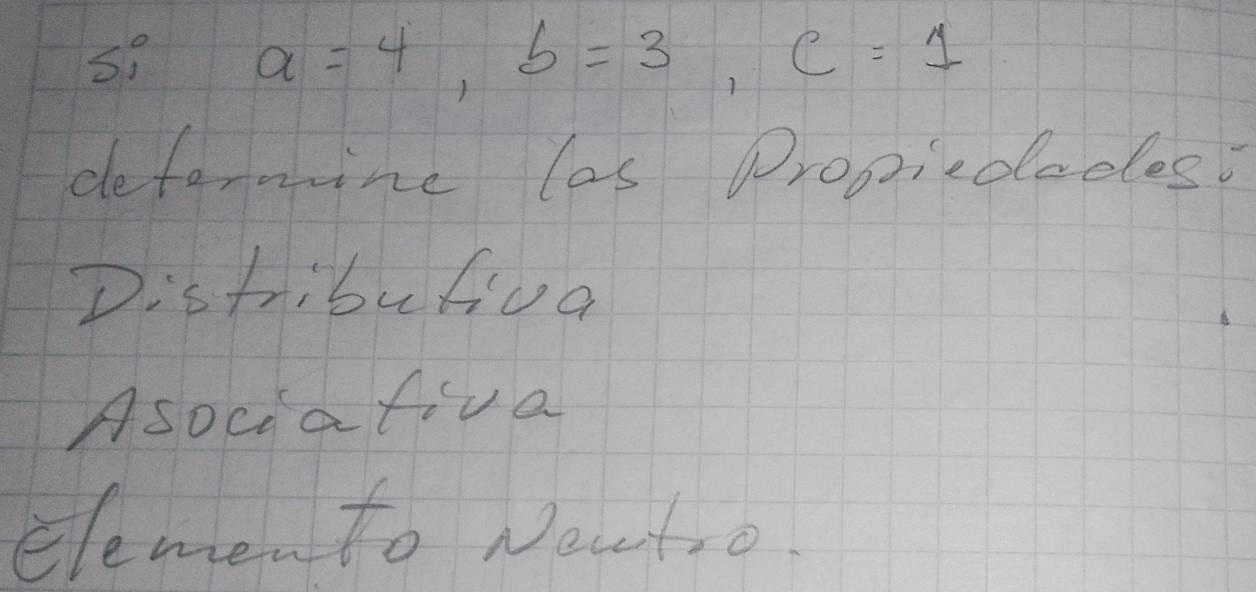 Si a = 4, b = 3, c = 1
determine las Propiedades:
Distributiva
Asociativa
Elemento Neutro.